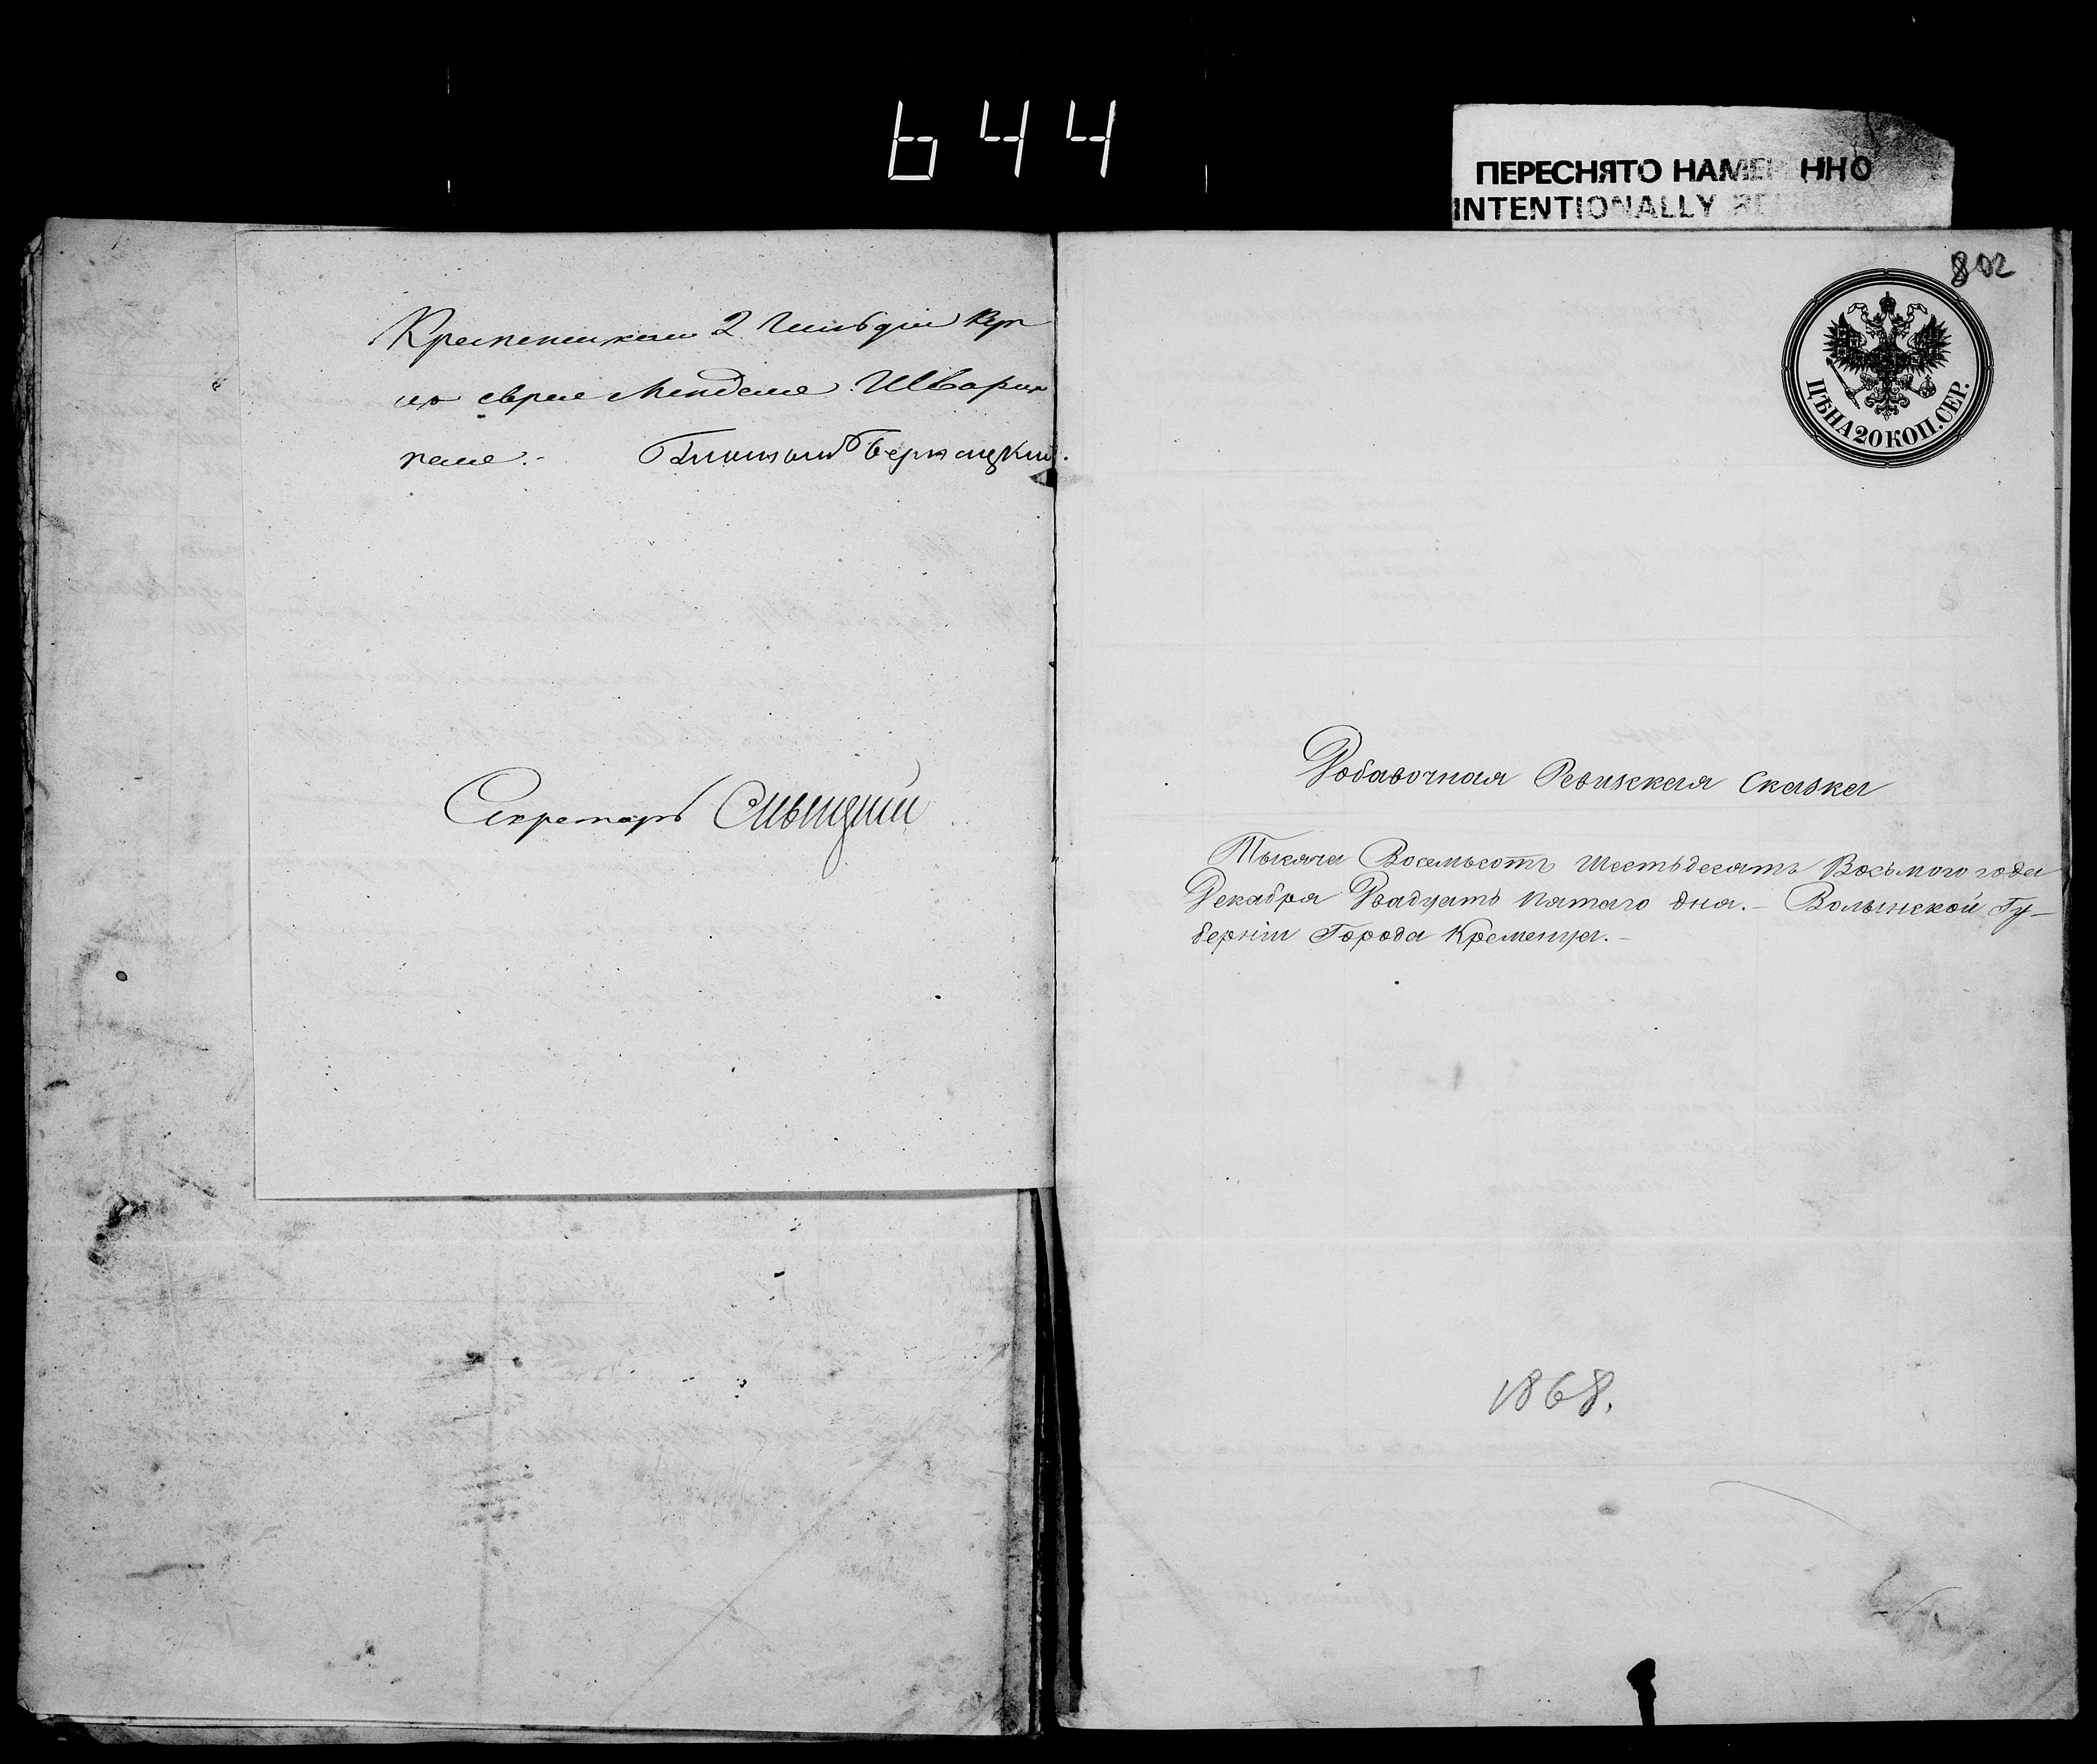 644
ПЕРЕСНЯТО НАМЕРЕННО
INTENTIONALLY
Кременецкаго 2 Гильдіи Куп
ца еврея Менделя Шварц
802
ЦѢНА 20 КОП. СЕР.
Секретарь
Добавочная Ревизская Сказка
Тысяча Восемьсотъ Шестьдесятъ Восьмого года
Декабря Двадцать Пятаго дня. – Волынской Гу–
берніи Города Кременца. –
1868.